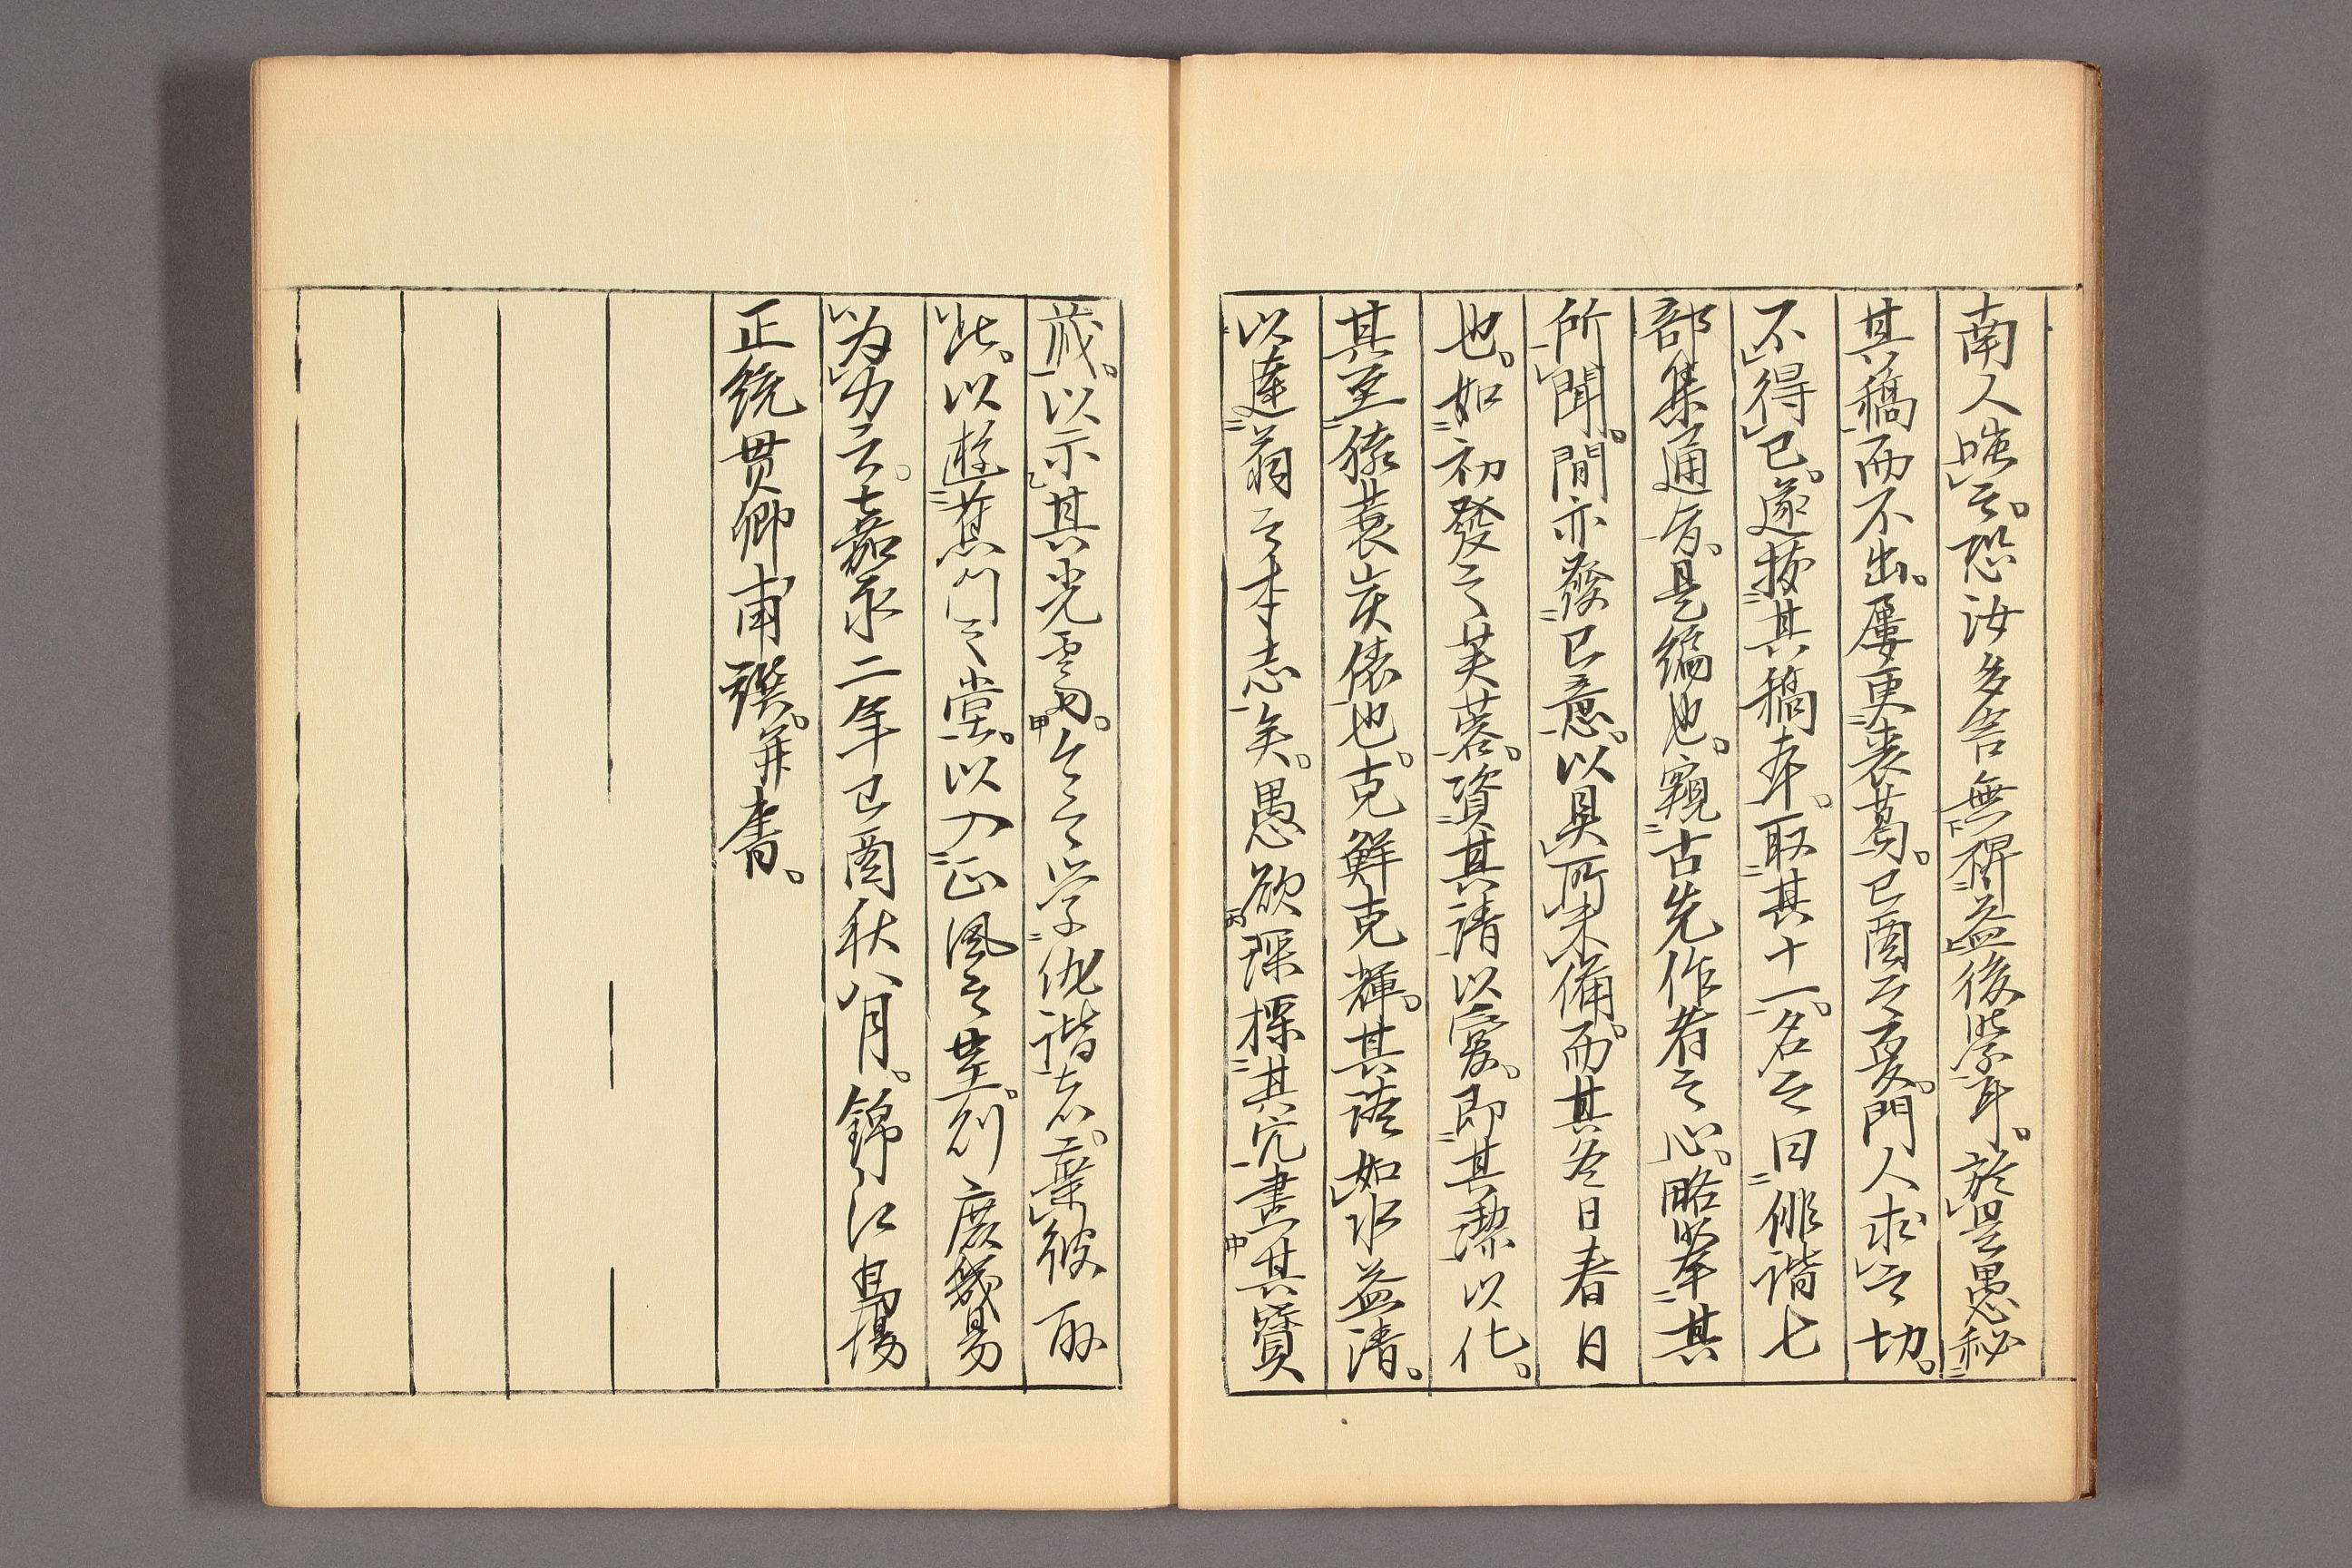 南人嗤云。恐汝多言無稗益後学耳。於是愚秘
其稿而不出。屢更裘葛。已酉之夏。門人求之切。
不得已。遂披其稿本。取其十一。名之曰俳諧七
部集通旨。是編也。窺古先作者之心。略挙其
所聞。間亦發已意。以具所未備。而其冬日春日
也。如初發之芙蓉。資其清以愛。即其潔以化。
其至猿蓑炭俵也。克鮮克輝。其譜如水益清。
以達翁之本志矣。愚欲深探其穴書其寶
蔵。以示其光雲。令之学俳諧者。葉彼取
此。以遊蕉門之堂。以入正風之室。則庶幾易
為力云。嘉永二年已酉秋八月。錦江馬場
正統貫卿甫撰。并書。